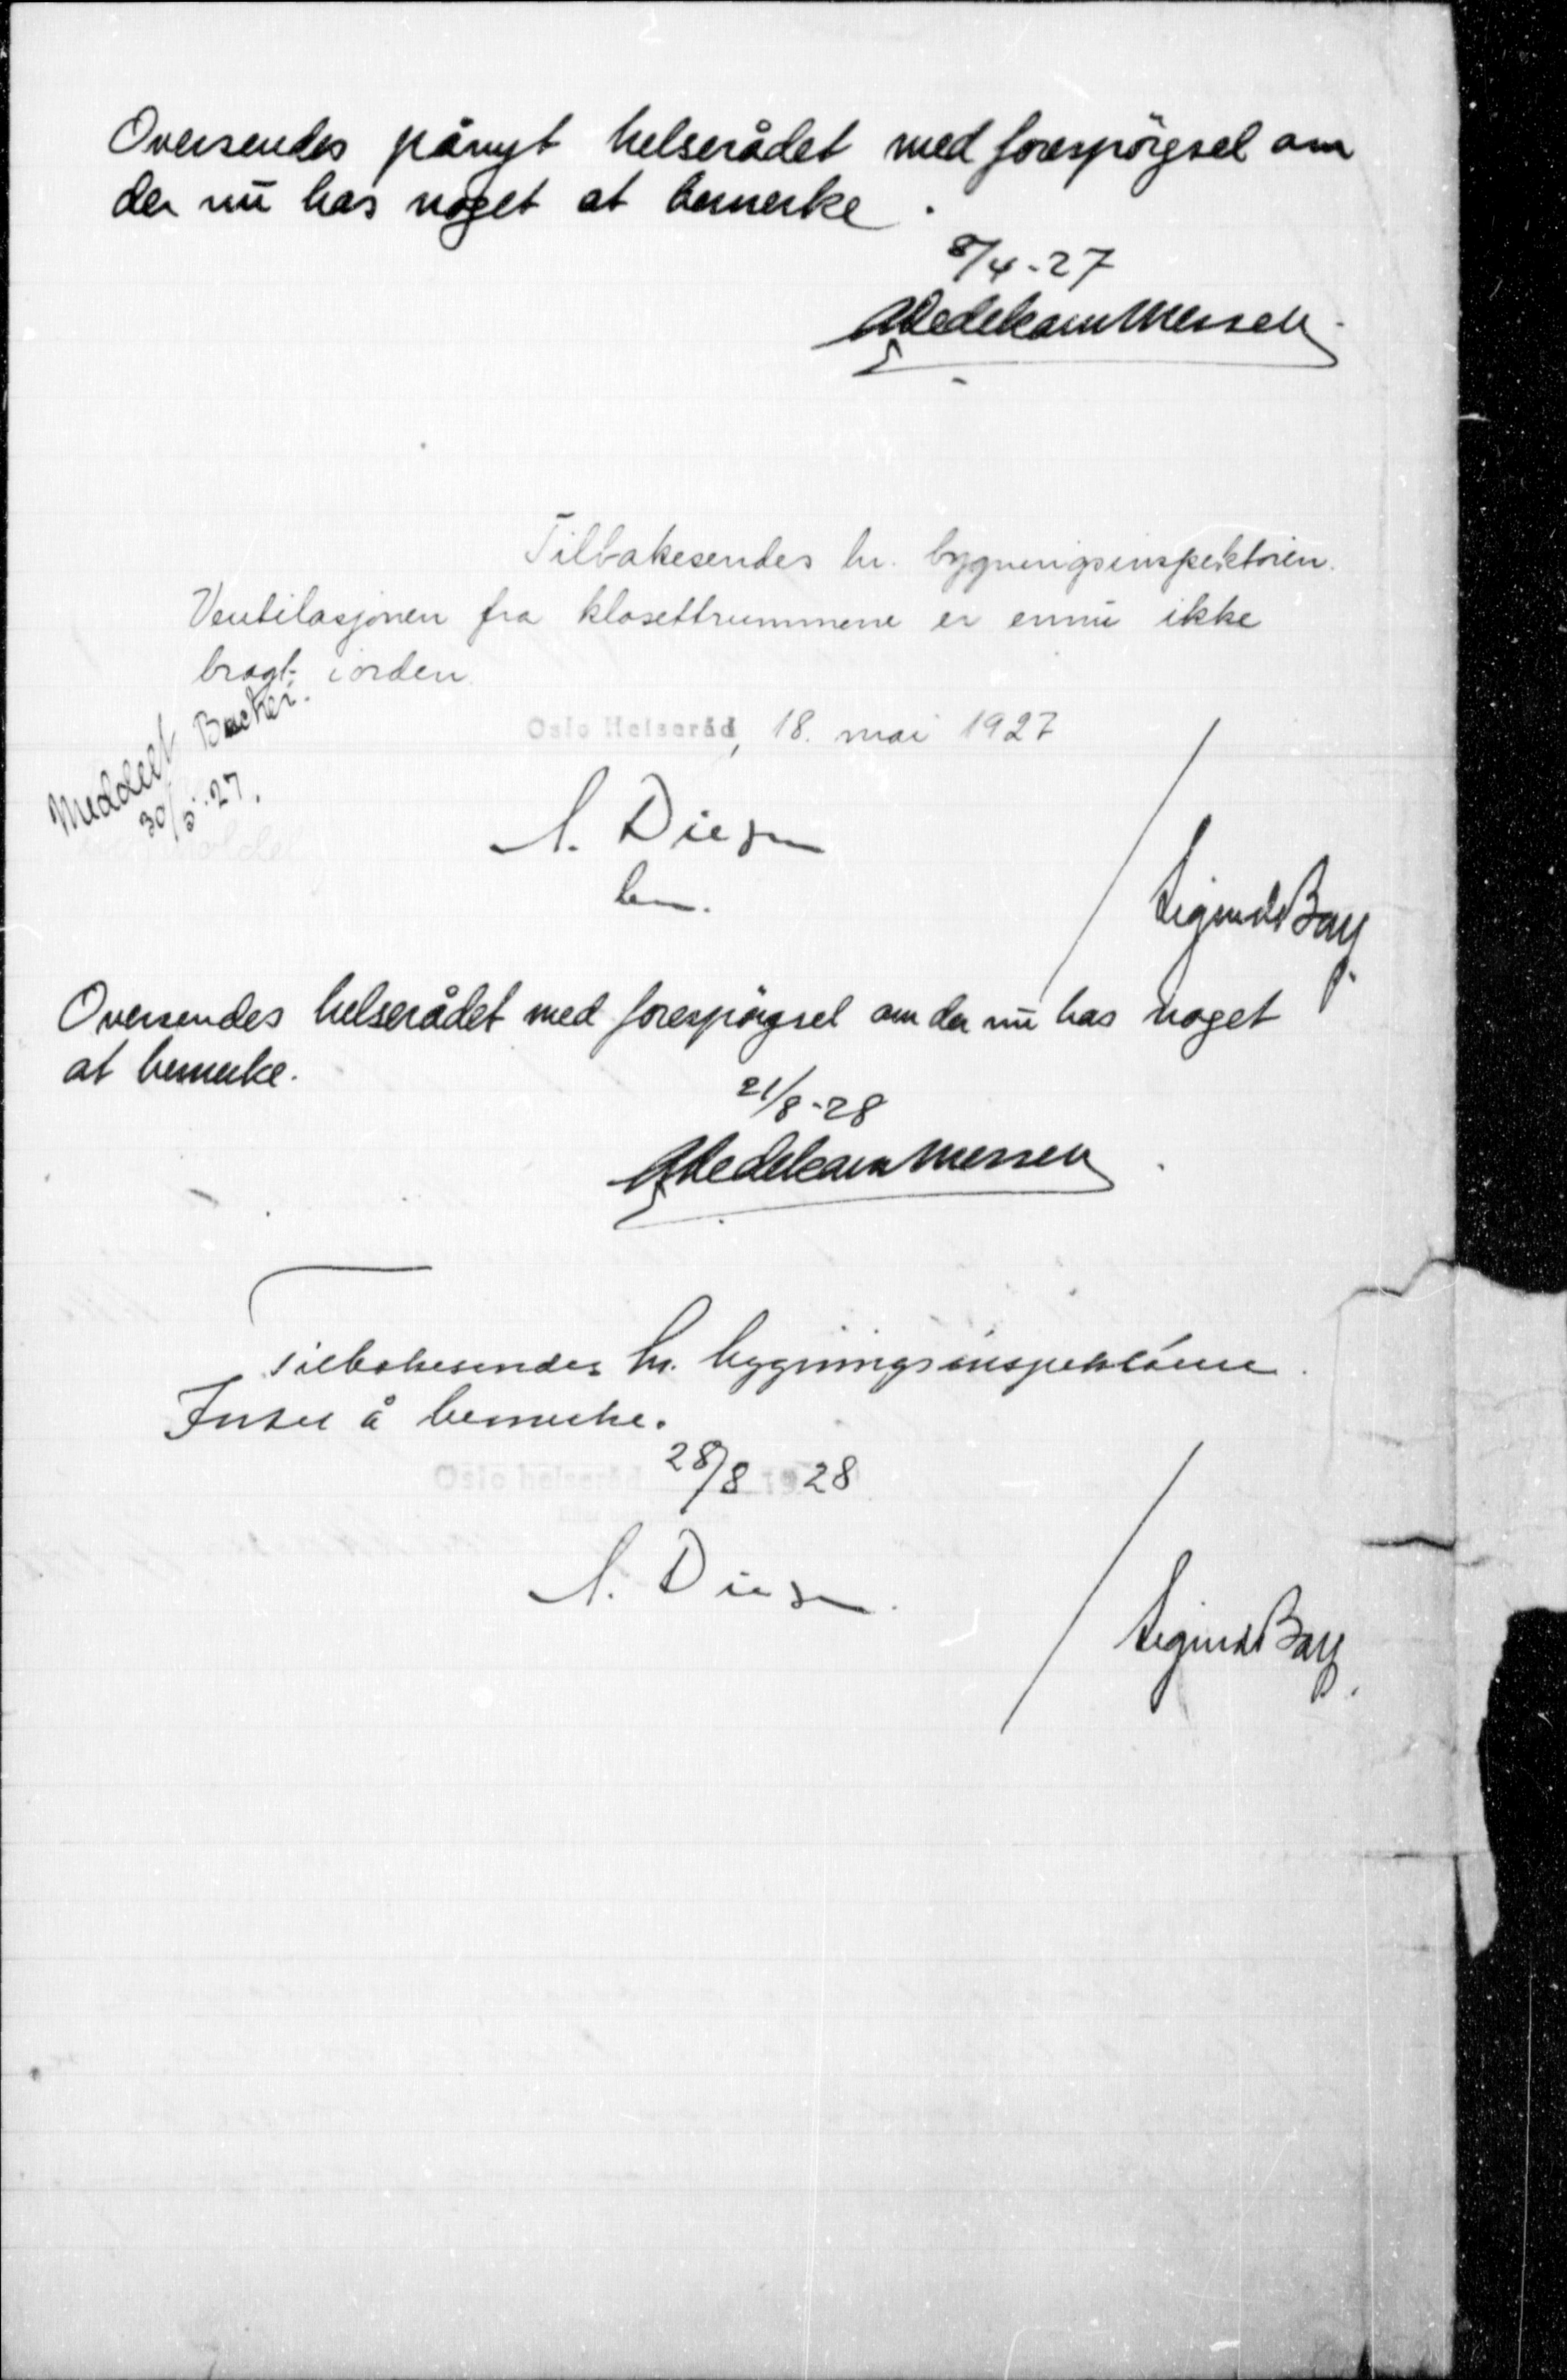 Oversendes pånyt helserådet med forespörgsel om
der nu has noget at bemerke.
8/4-27
Tilbakesendes hr. bygningsinspektøren.
Ventilasjonen fra klosettrummene er ennu ikke
bragt i orden.
Oslo Helseråd, 18. mai 1927
Meddelt
30/5.27.
S. Diesen
Sigurd Bay
Oversendes helserådet med forespörgsel om der nu has noget
at bemerke.
21/8-28
Tilbakesendes hr. bygningsinspektøren.
Intet å bemerke.
Oslo helseråd 28/8 1928
S. Diesen.
Sigurd Bay.